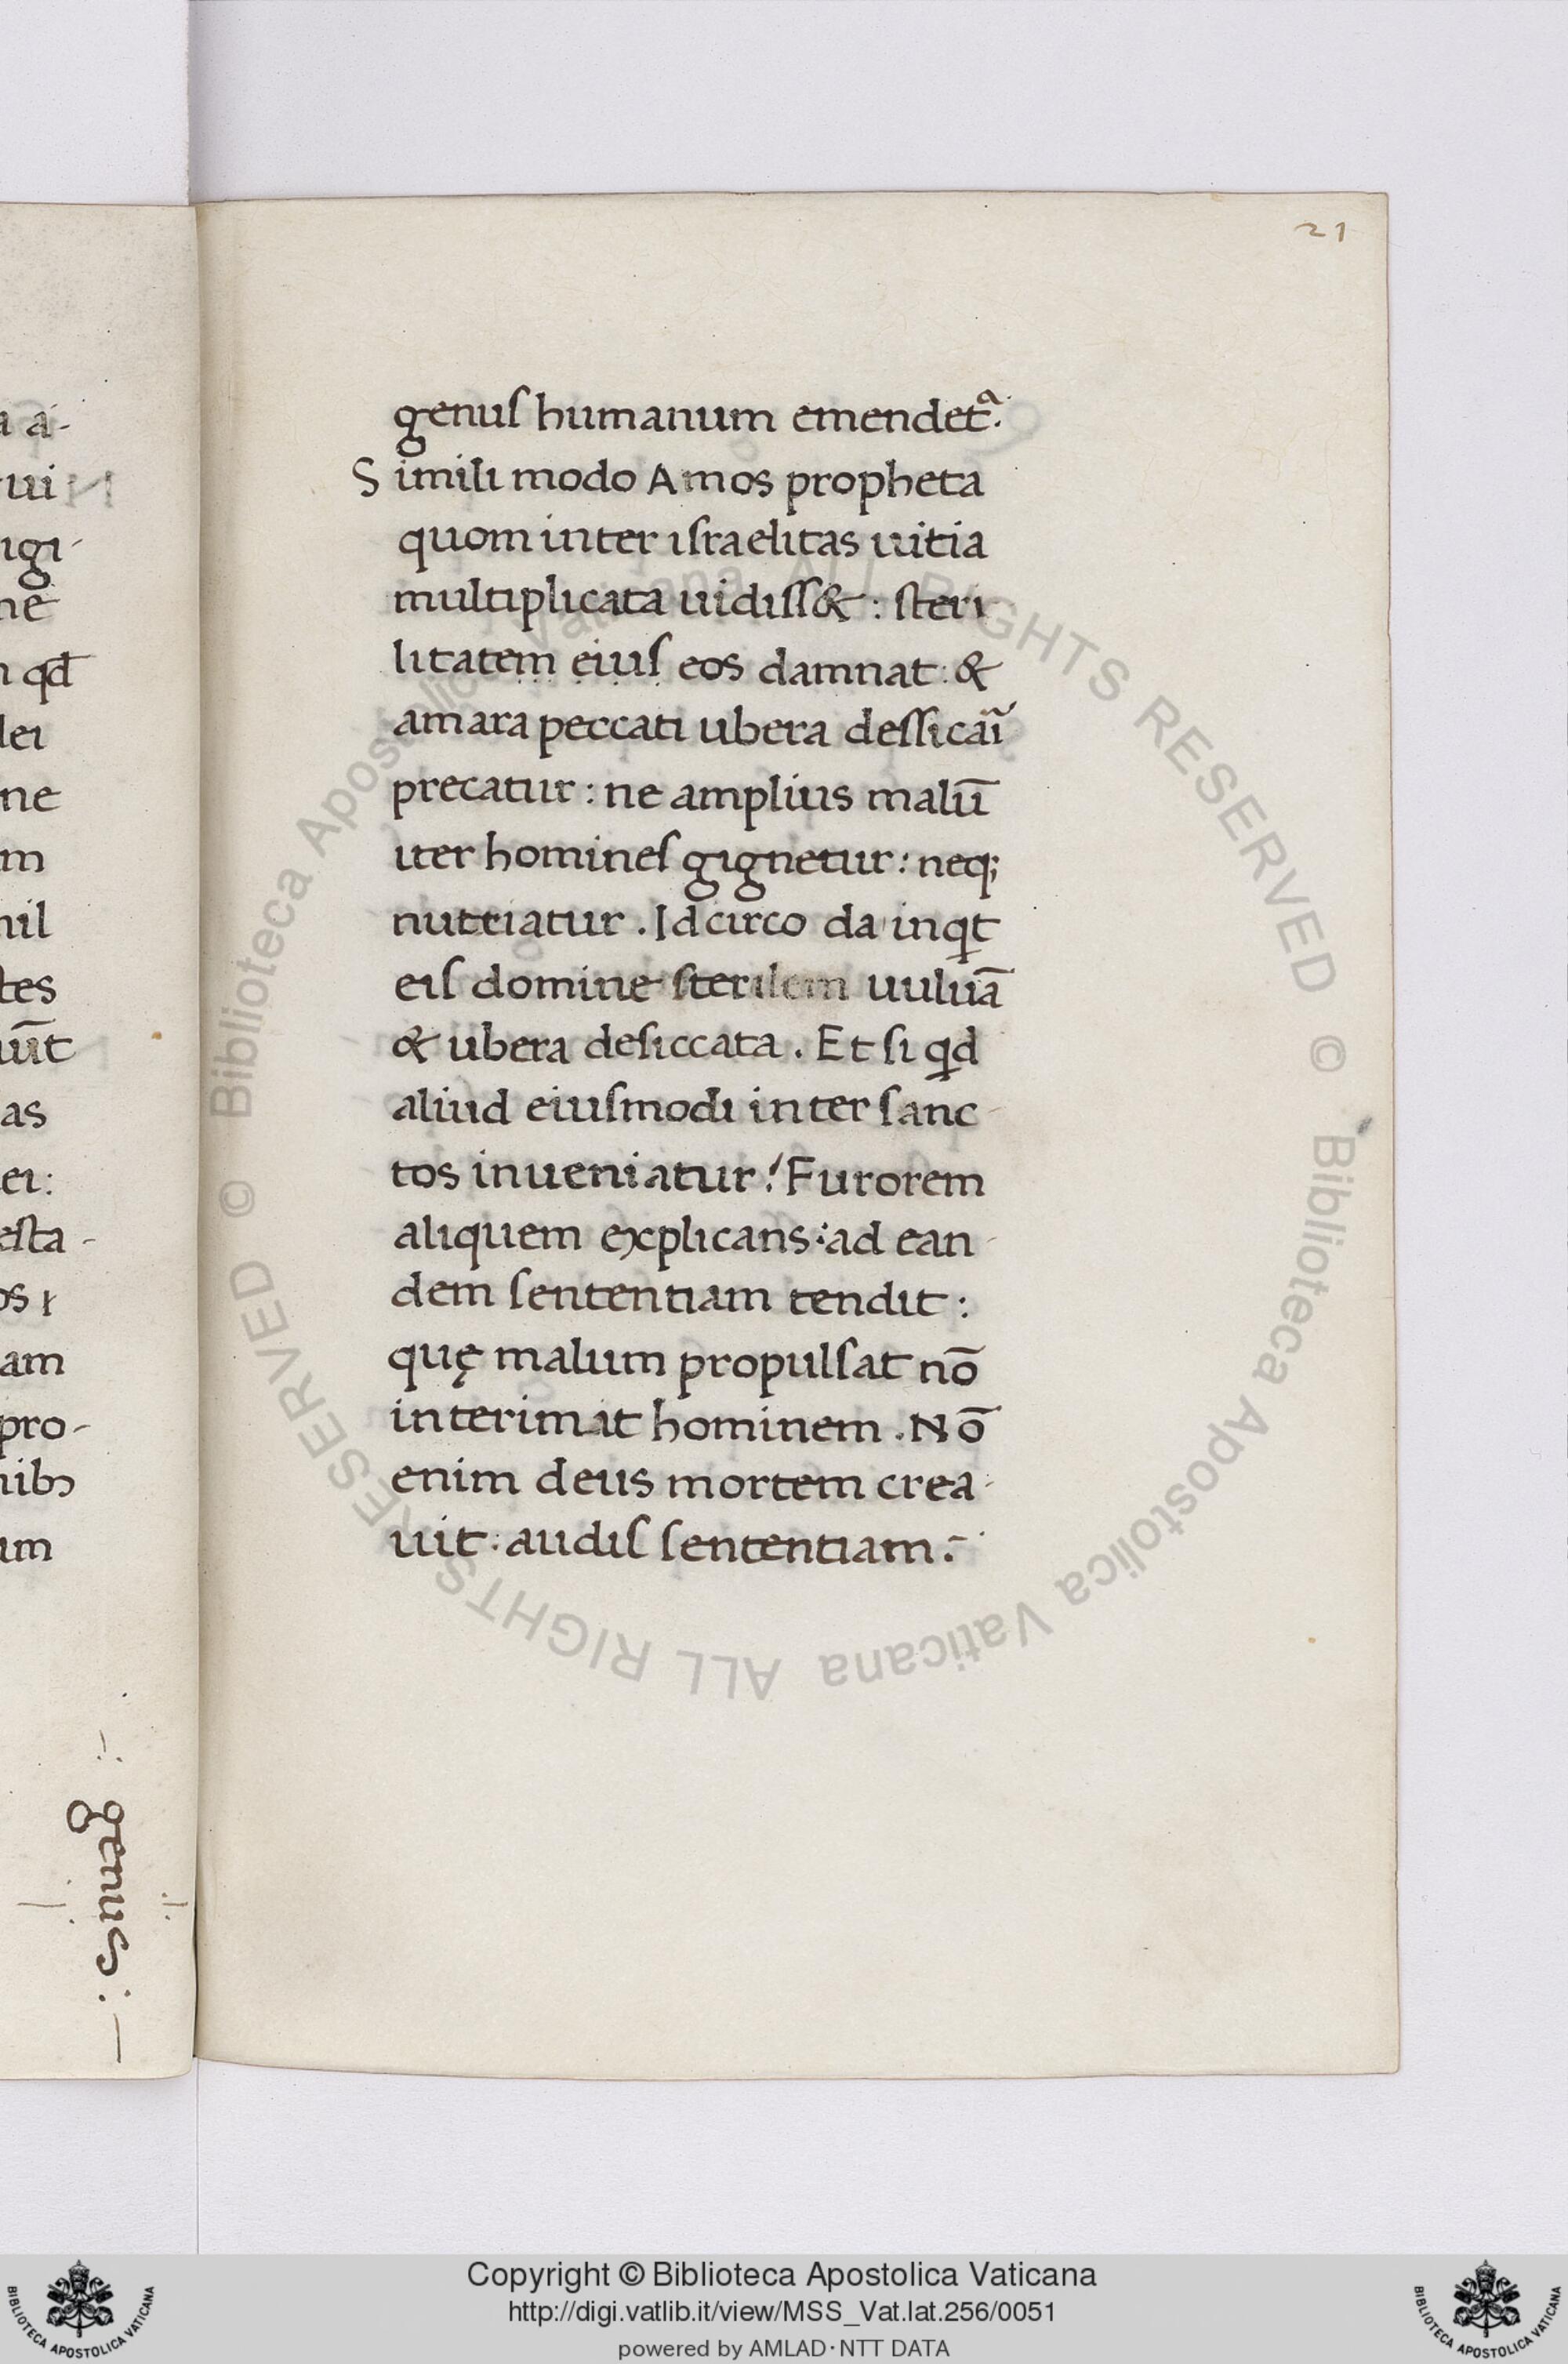 21
genuſ humanum emendetᵃ.
Simili modo Amos propheta
quom inter iſraelitas uitia
multiplicata uidiſſ& : ſteri
litatem eiuſ eos damnat : &
amara peccati ubera deſſicari
precatur : ne amplius malū
iter homineſ gignetur : neq;
nutriatur . Idcirco da inqt
eiſ domine ſterilem uuluā
& ubera deſiccata . Et ſi qd
aliud eiuſmodi inter ſanc-
tos inueniatur ! Furorem
aliquem explicans : ad ean-
dem ſententiam tendit :
quę malum propulſat nō
interimit hominem . Nō
enim deus mortem crea-
uit : audiſ ſententiam :-
a a-
ui
igi-
ne
qd̄
lei
ne
m
nil
tes
ūt
as
ei:
eſta-
os
am
pro-
um
genus : —
© Biblioteca Apostolica Vaticana ALL RIGHTS RESERVED
© Biblioteca Apostolica Vaticana ALL RIGHTS RESERVED
Copyright © Biblioteca Apostolica Vaticana
http://digi.vatlib.it/view/MSS_Vat.lat.256/0051
powered by AMLAD·NTT DATA
BIBLIOTECA APOSTOLICA VATICANA
BIBLIOTECA APOSTOLICA VATICANA